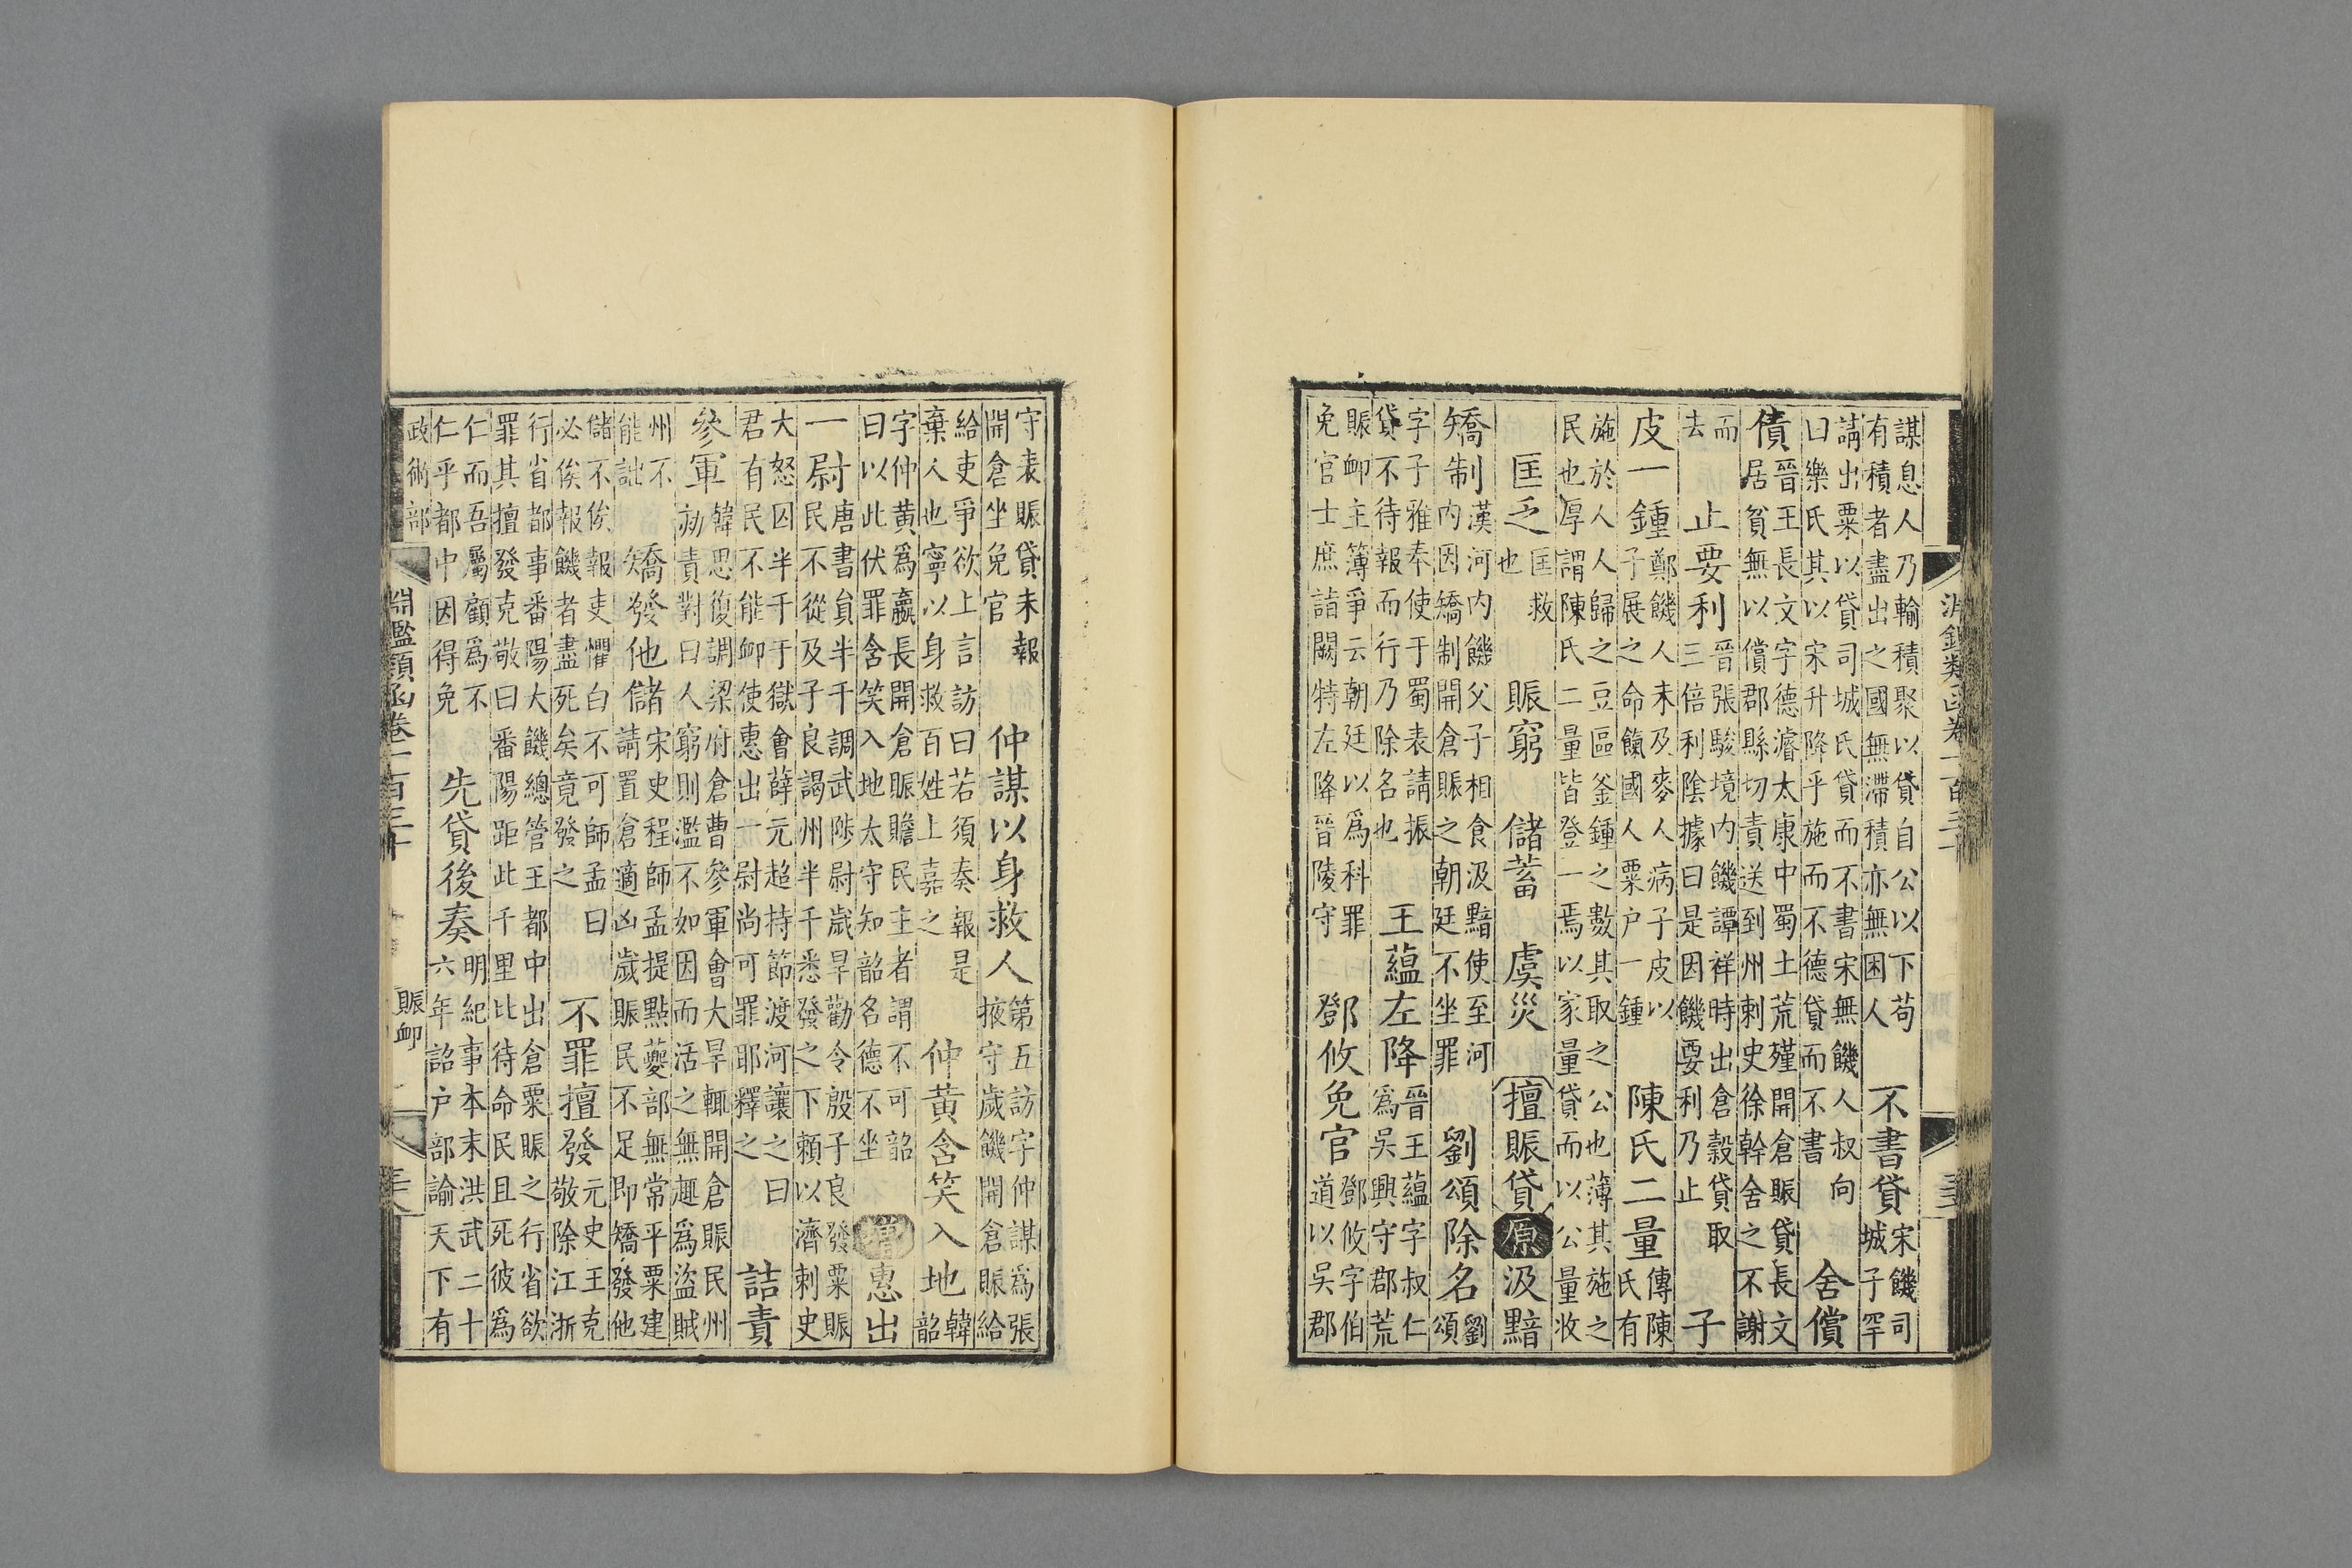 淵鑑類函卷一百三十
謀息人乃輸積聚以貸自公以下苟
有積者盡出之國無滯積亦無困人
不書貸
宋饑司
城子罕
請出粟以貸司城氏貸而不書宋無饑人叔向
曰樂氏其以宋升降乎施而不德貸而不書
舍償
債
晉王長文字德濬太康中蜀土荒殣開倉賑貸長文
居貧無以償郡縣切責送到州刺史徐幹舍之不謝
而
去
止要利
晉張駿境內饑譚祥時出倉穀貸取
三倍利陰據曰是因饑要利乃止
子
皮一鍾
鄭饑人未及麥人病子皮以
子展之命餼國人粟户一鍾
陳氏二量
傳陳
氏有
施於人人歸之豆區釜鍾之數其取之公也薄其施之
民也厚謂陳氏二量皆登一焉以家量貸而以公量收
匡乏
匡救
也
賑窮 儲蓄 虞災 擅賑貸 原 汲黯
矯制
漢河內饑父子相食汲黯使至河
內因矯制開倉賑之朝廷不坐罪
劉頌除名
劉
頌
字子雅奉使于蜀表請振
貸不待報而行乃除名也
王蘊左降
晉王蘊字叔仁
爲吳興守郡荒
賑卹主簿爭云朝廷以爲科罪
免官士庶詣闕特左降晉陵守
鄧攸免官
鄧攸字伯
道以吳郡
守表賑貸未報
開倉坐免官
仲謀以身救人
第五訪字仲謀爲張
掖守歲饑開倉賑給
給吏爭欲上言訪曰若須奏報是
棄人也寧以身救百姓上嘉之
仲黃含笑入地
韓
韶
字仲黃爲嬴長開倉賑贍民主者謂不可韶
曰以此伏罪含笑入地太守知韶名德不坐
增 惠出
一尉
唐書員半千調武陟尉歲旱勸令殷子良發粟賑
民不從及子良謁州半千悉發之下賴以濟刺史
大怒囚半千于獄會薛元超持節渡河讓之曰
君有民不能卹使惠出一尉尚可罪耶釋之
詰責
參軍
韓思復調梁府倉曹參軍會大旱輒開倉賑民州
劾責對曰人窮則濫不如因而活之無趣爲盜賊
州不
能詘
矯發他儲
宋史程師孟提點夔部無常平粟建
請置倉適凶歲賑民不足即矯發他
儲不俟報吏懼白不可師孟曰
必俟報饑者盡死矣竟發之
不罪擅發
元史王克
敬除江浙
行省都事番陽大饑總管王都中出倉粟賑之行省欲
罪其擅發克敬曰番陽距此千里比待命民且死彼爲
仁而吾屬顧爲不
仁乎都中因得免
先貸後奏
明紀事本末洪武二十
六年詔户部諭天下有
政術部 淵鑑類函卷一百三十 賑卹